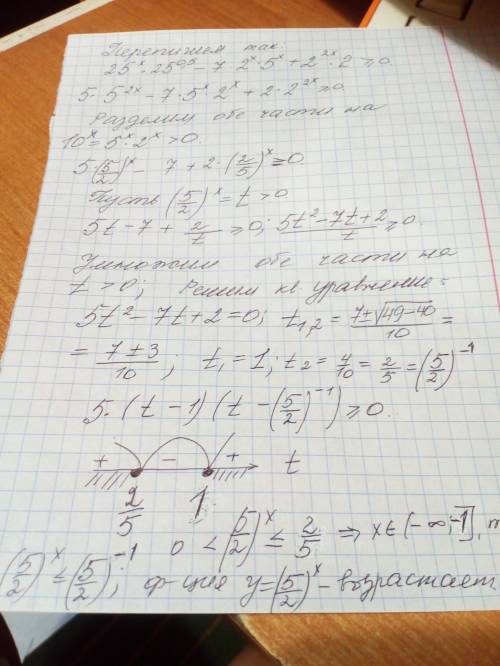 Перепишем так:
25^x · 25^0,5 − 7 · 2^x · 5^x + 2^2x · 2 ≥ 0
5 · 5^2x − 7 · 5^x · 2^x + 2 · 2^2x ≥ 0
Разделим обе части на
10^x = 5^x · 2^x > 0.
5(5/2)^x − 7 + 2 · (2/5)^x ≥ 0.
Пусть (5/2)^x = t > 0.
5t − 7 + 2/t ≥ 0; (5t² − 7t + 2)/t ≥ 0.
Умножим обе части на
t > 0; Решим кв. уравнение:
5t² − 7t + 2 = 0; t1,2 = (7 ± √(49−40))/10 =
= (7 ± 3)/10; t1 = 1; t2 = 4/10 = 2/5 = (5/2)^−1
5 · (t − 1)(t − (5/2)^−1) ≥ 0.
+ − + t
2/5 1
0 < (5/2)^x ≤ 2/5 ⇒ x ∈ (−∞; −1], т
(5/2)^x ≤ (5/2)^−1; ф-ция y = (5/2)^x − возрастает